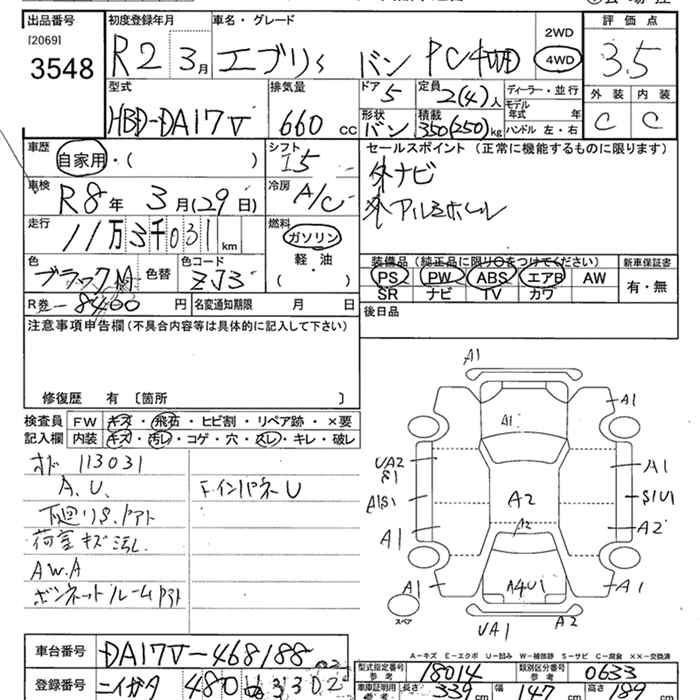 出品番号 初度登録年月 車名・グレード 2WD 評価点
[2069] R2 3月 エブリィ バン PC 4WD 4WD 3.5
3548 型式 排気量 ドア 定員 ディーラー・並行 外装 内装
HBD-DA17V 660cc 5 2(4)人 モデル年式 年 C C
形状 積載 ハンドル 左・右
バン 350(250)kg
車歴 シフト セールスポイント (正常に機能するものに限ります)
自家用・( ) I5 外ナビ
車検 冷房 外アルミホイール
R8年 3月(29日) A/C
走行 燃料
11万3千031km ガソリン
軽・油
( )
色 色替 色コード 装備品 (純正品に限り○をつけてください) 新車保証書
ブラックM ZJ3 PS PW ABS エアB AW 有・無
SR ナビ TV カワ
R券 8460円 名変通知期限 月 日 後日品
注意事項申告欄(不具合内容等は具体的に記入して下さい)
修復歴 有 〔箇所 〕
検査員 FW キズ・飛石・ヒビ割・リペア跡・×要
記入欄 内装 キズ・汚レ・コゲ・穴・スレ・キレ・破レ
オド 113031
A.U. FインパネU
下廻りS.アト
荷室キズ汚レ
AW.A
ボンネットルームアト
A1
A1 A1
UA2 S1 A1
A1S1 A2 S1U1
A1 A2 A2
A1 A4U1 A1
スペア UA1 A2
A-キズ E-エクボ U-凹み W-補修跡 S-サビ C-腐食 ××-交換済
車台番号 DA17V-468188
型式指定番号 参考 18014 類別区分番号 参考 0633
登録番号 ニイガタ 480
車庫証明用 参考 長さ 339cm 幅 147cm 高さ 199cm